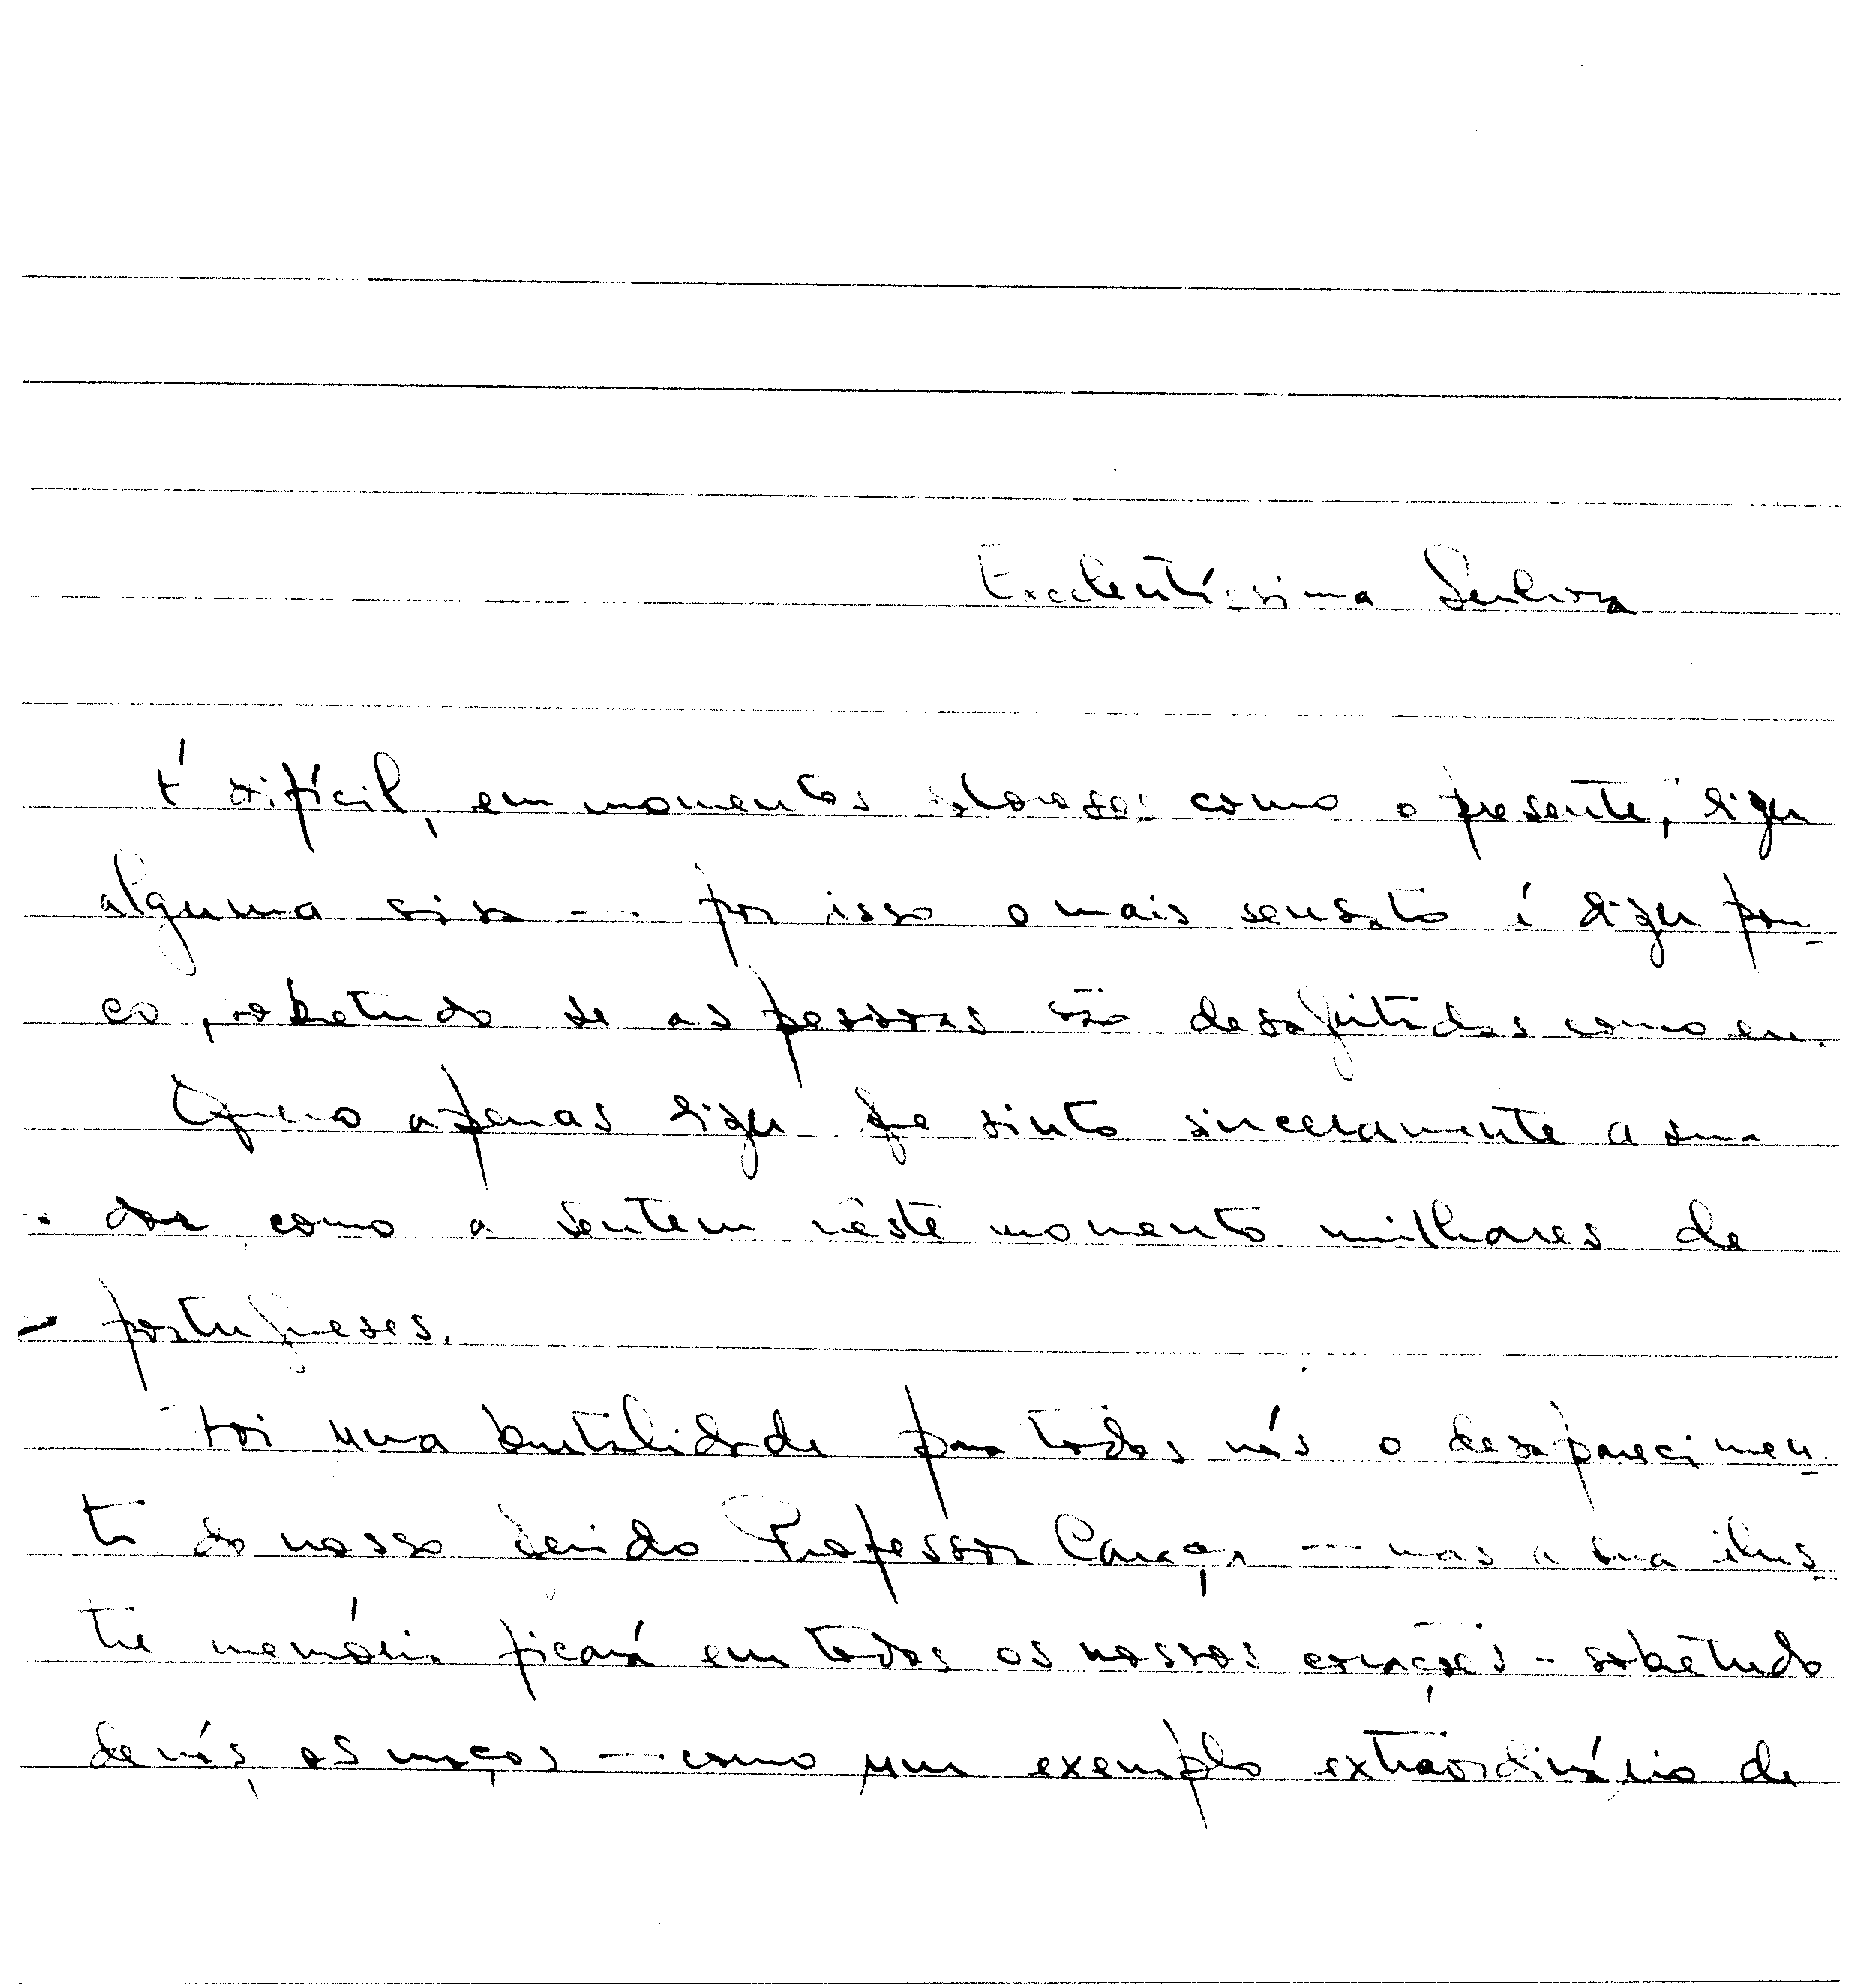 Excelentíssima Senhora
É difícil, em momentos dolorosos como o presente, dizer
alguma coisa -- por isso o mais sensato é dizer pou-
co, sobretudo se as pessoas são desajeitadas como eu.
Quero apenas dizer que sinto sinceramente a sua
dor como a sentem nêste momento milhares de
portugueses.
Foi uma brutalidade para todos nós o desaparecimen-
to do nosso querido Professor Caraça -- mas a sua ilus-
tre memória ficará em todos os nossos corações - sobretudo
de nós, os moços -- como um exemplo extraordinário de